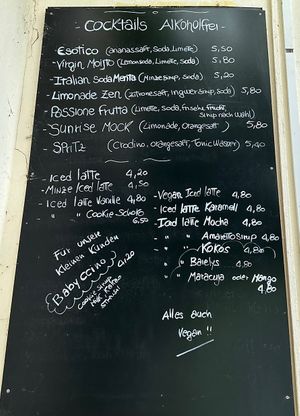 - Cocktails Alkoholfrei -
- Esotico (ananassaft, Soda, Limette) 5,50
- Virgin Mojito (Lemonsoda, Limette, Soda) 5,80
- Italian Soda Menta (Minzesirup, Soda) 5,20
- Limonade Zen (Zitronensaft, Ingwer Sirup, Soda) 5,80
- Passione Frutta (Limette, Soda, frische Frucht, Sirup nach Wahl) 5,80
- Sunrise Mock (Limonade, Orangesaft)
- Spritz (Crodino, Orangesaft, Tonic Wasser) 5,40
- Iced latte 4,20
- Minze Iced latte 4,50
- Iced latte Vanille 4,80
- " " Cookie-Schoko 6,50
Für unsere
kleinen Kunden
Babyccino 4,20
- Vegan Iced latte 4,80
- Iced latte Karamell 4,80
- Iced latte Mocha 4,80
- " " Amaretto Sirup 4,80
- " " Kokos 4,80
- " " Baileys 4,80
- " " Maracuya oder Mango 4,80
Alles auch
Vegan !!